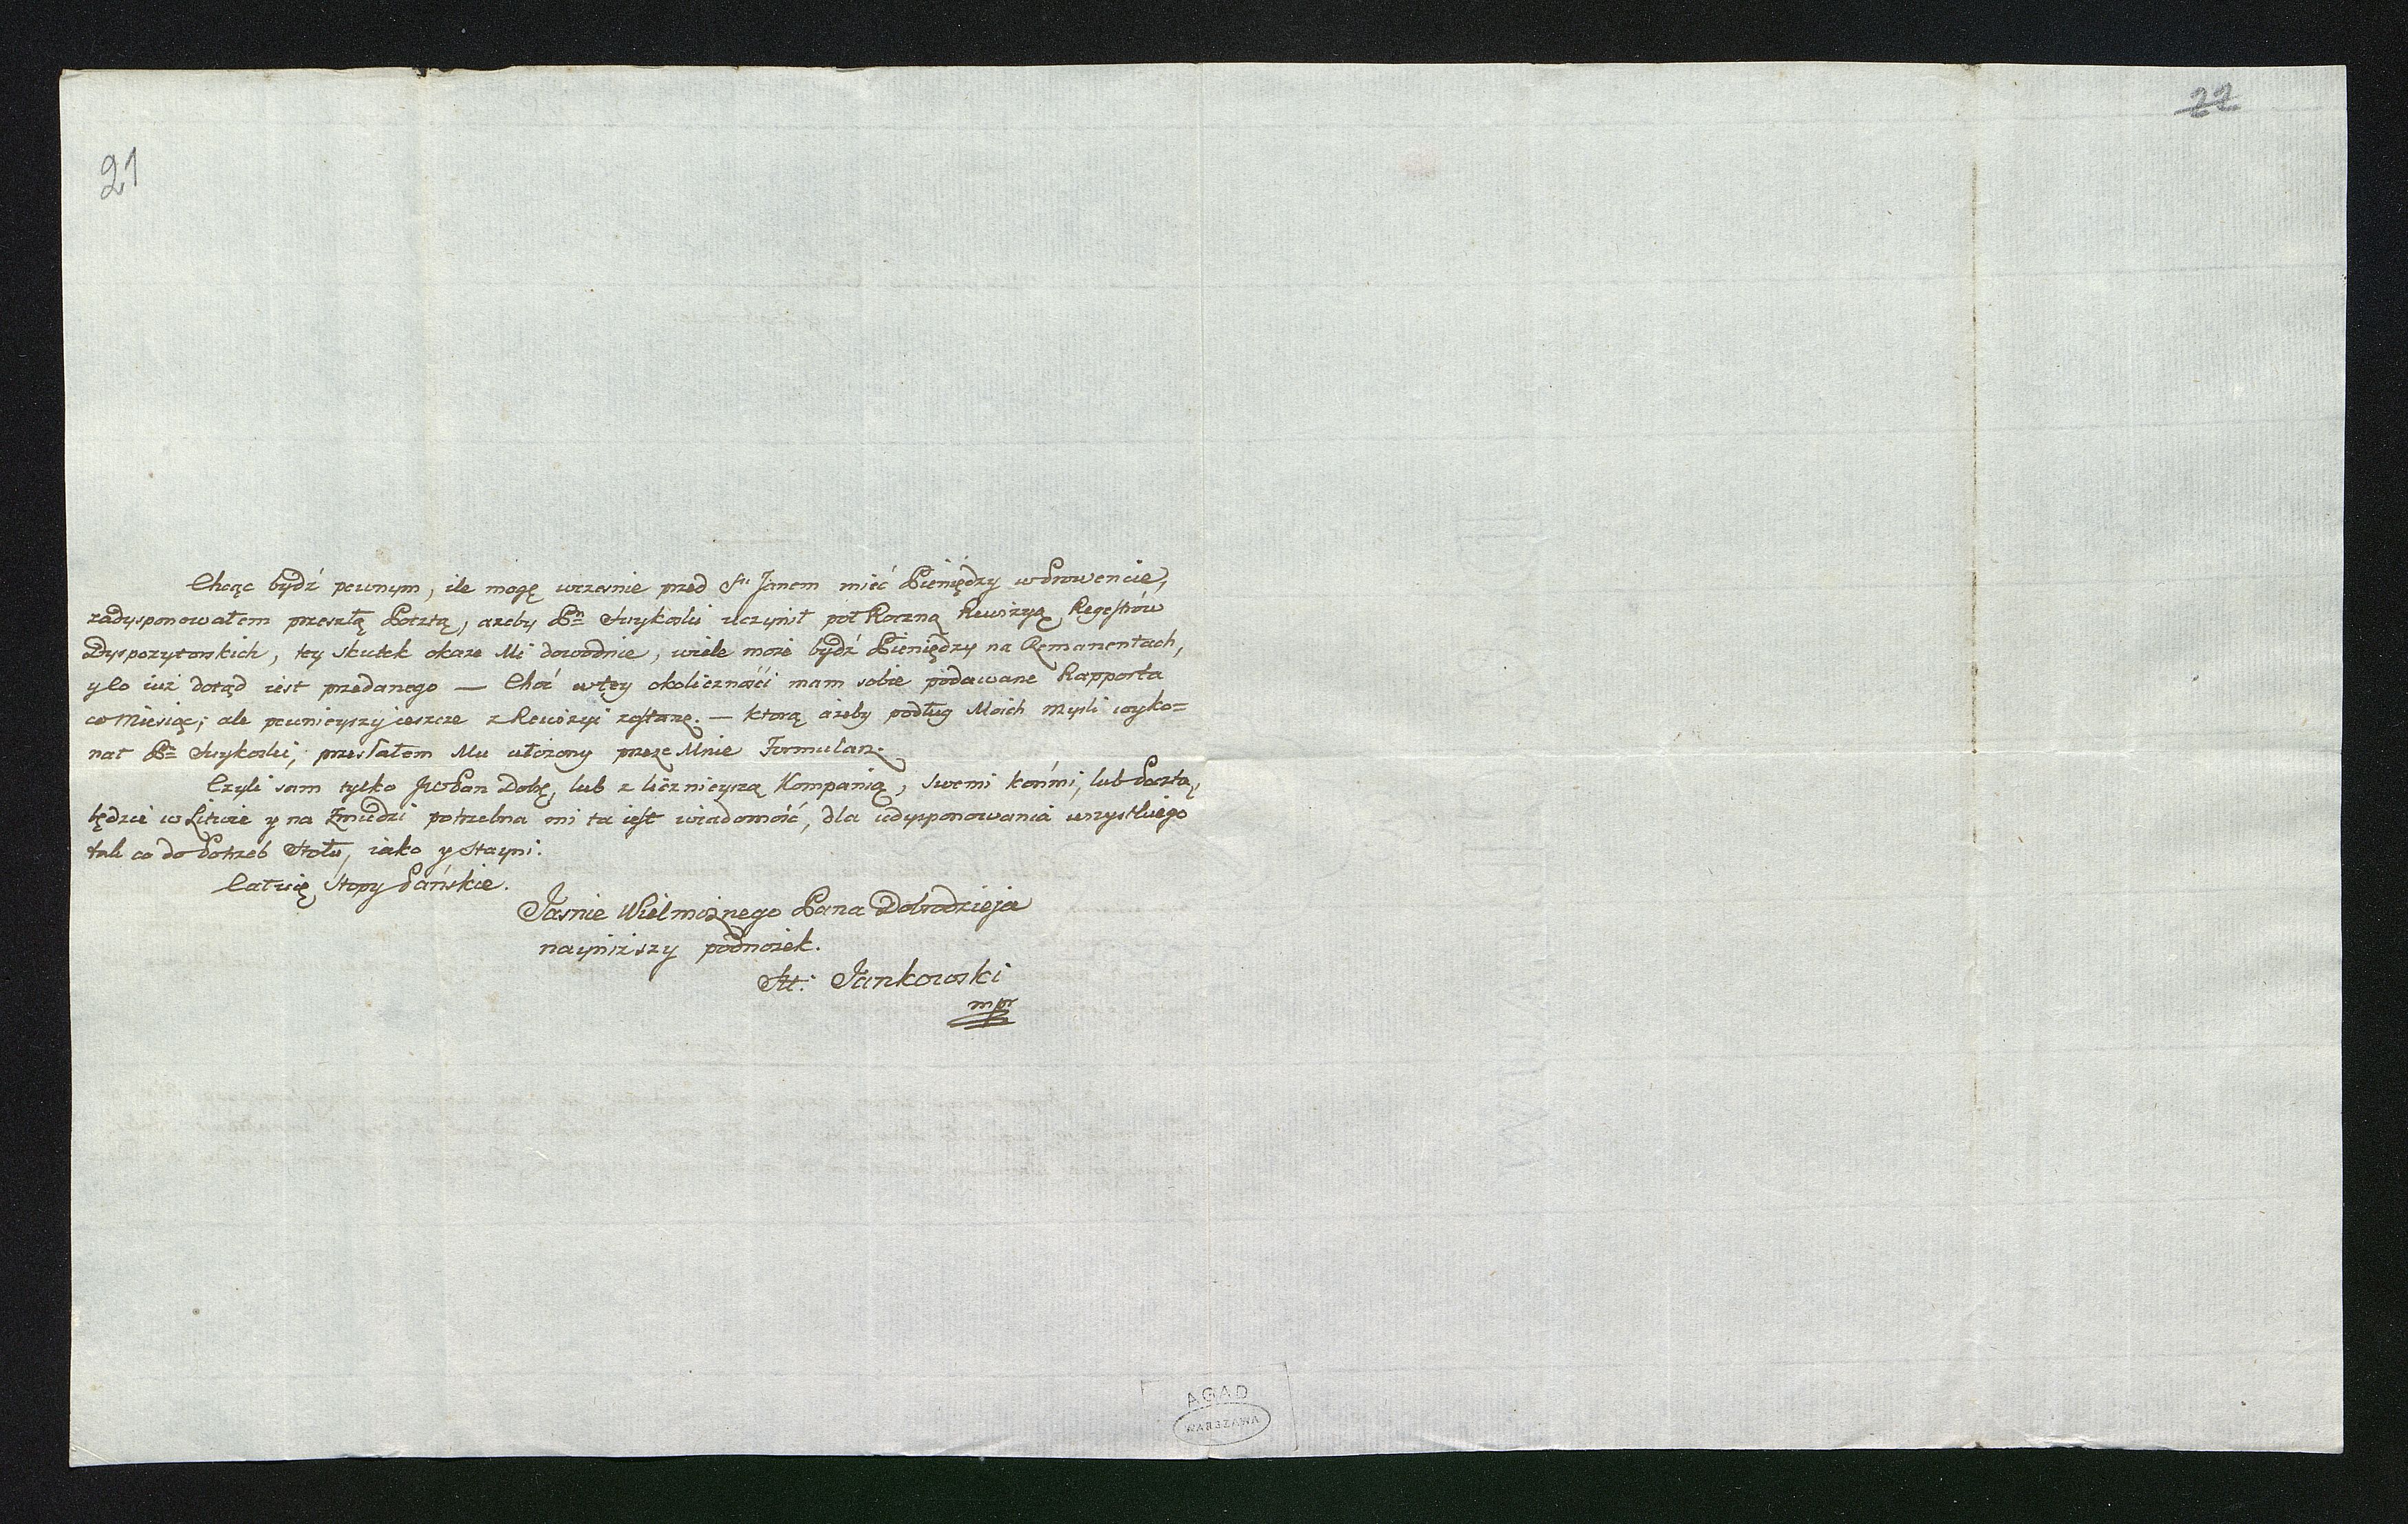 22
21
Chcąc bydź pewnym, ile mogę wcześnie przed Sm Janem mieć Pieniędzy w Prowencie,
zadysponowałem przeszłą Pocztą, azeby Pn uczynił poł Roczną Rewizyą Regestrów
Dyspozytorskich, tey skutek okaze Mi dowodnie, wiele może bydź Pieniędzy na Remanentach,
y Co iuż dotąd iest przedanego — Choć w tey okoliczności mam sobie podawane Rapporta
co Miesiąc; ale pewnieyszy ieszcze z Rewizyi zostanę. — ktorą azeby podług Moich myśli wyko=
nał Pn przesłałem Mu ułożony przeze Mnie Formularz.
Czyli sam tylko JW Pan Dobr, lub z licznieyszą Kompanią, swemi końmi, lub Pocztą,
będzie w Litwie y na Żmudzi potrzebna mi ta iest wiadomość, dla udysponowania wszystkiego
tak co do Potrzeb Stołu, iako y Stayni.
Całuię Stopy Pańskie.
Jaśnie Wielmożnego Pana Dobrodzieja
nayniższy podnożek.
St: Jankowski
mpr
AGAD
WARSZAWA